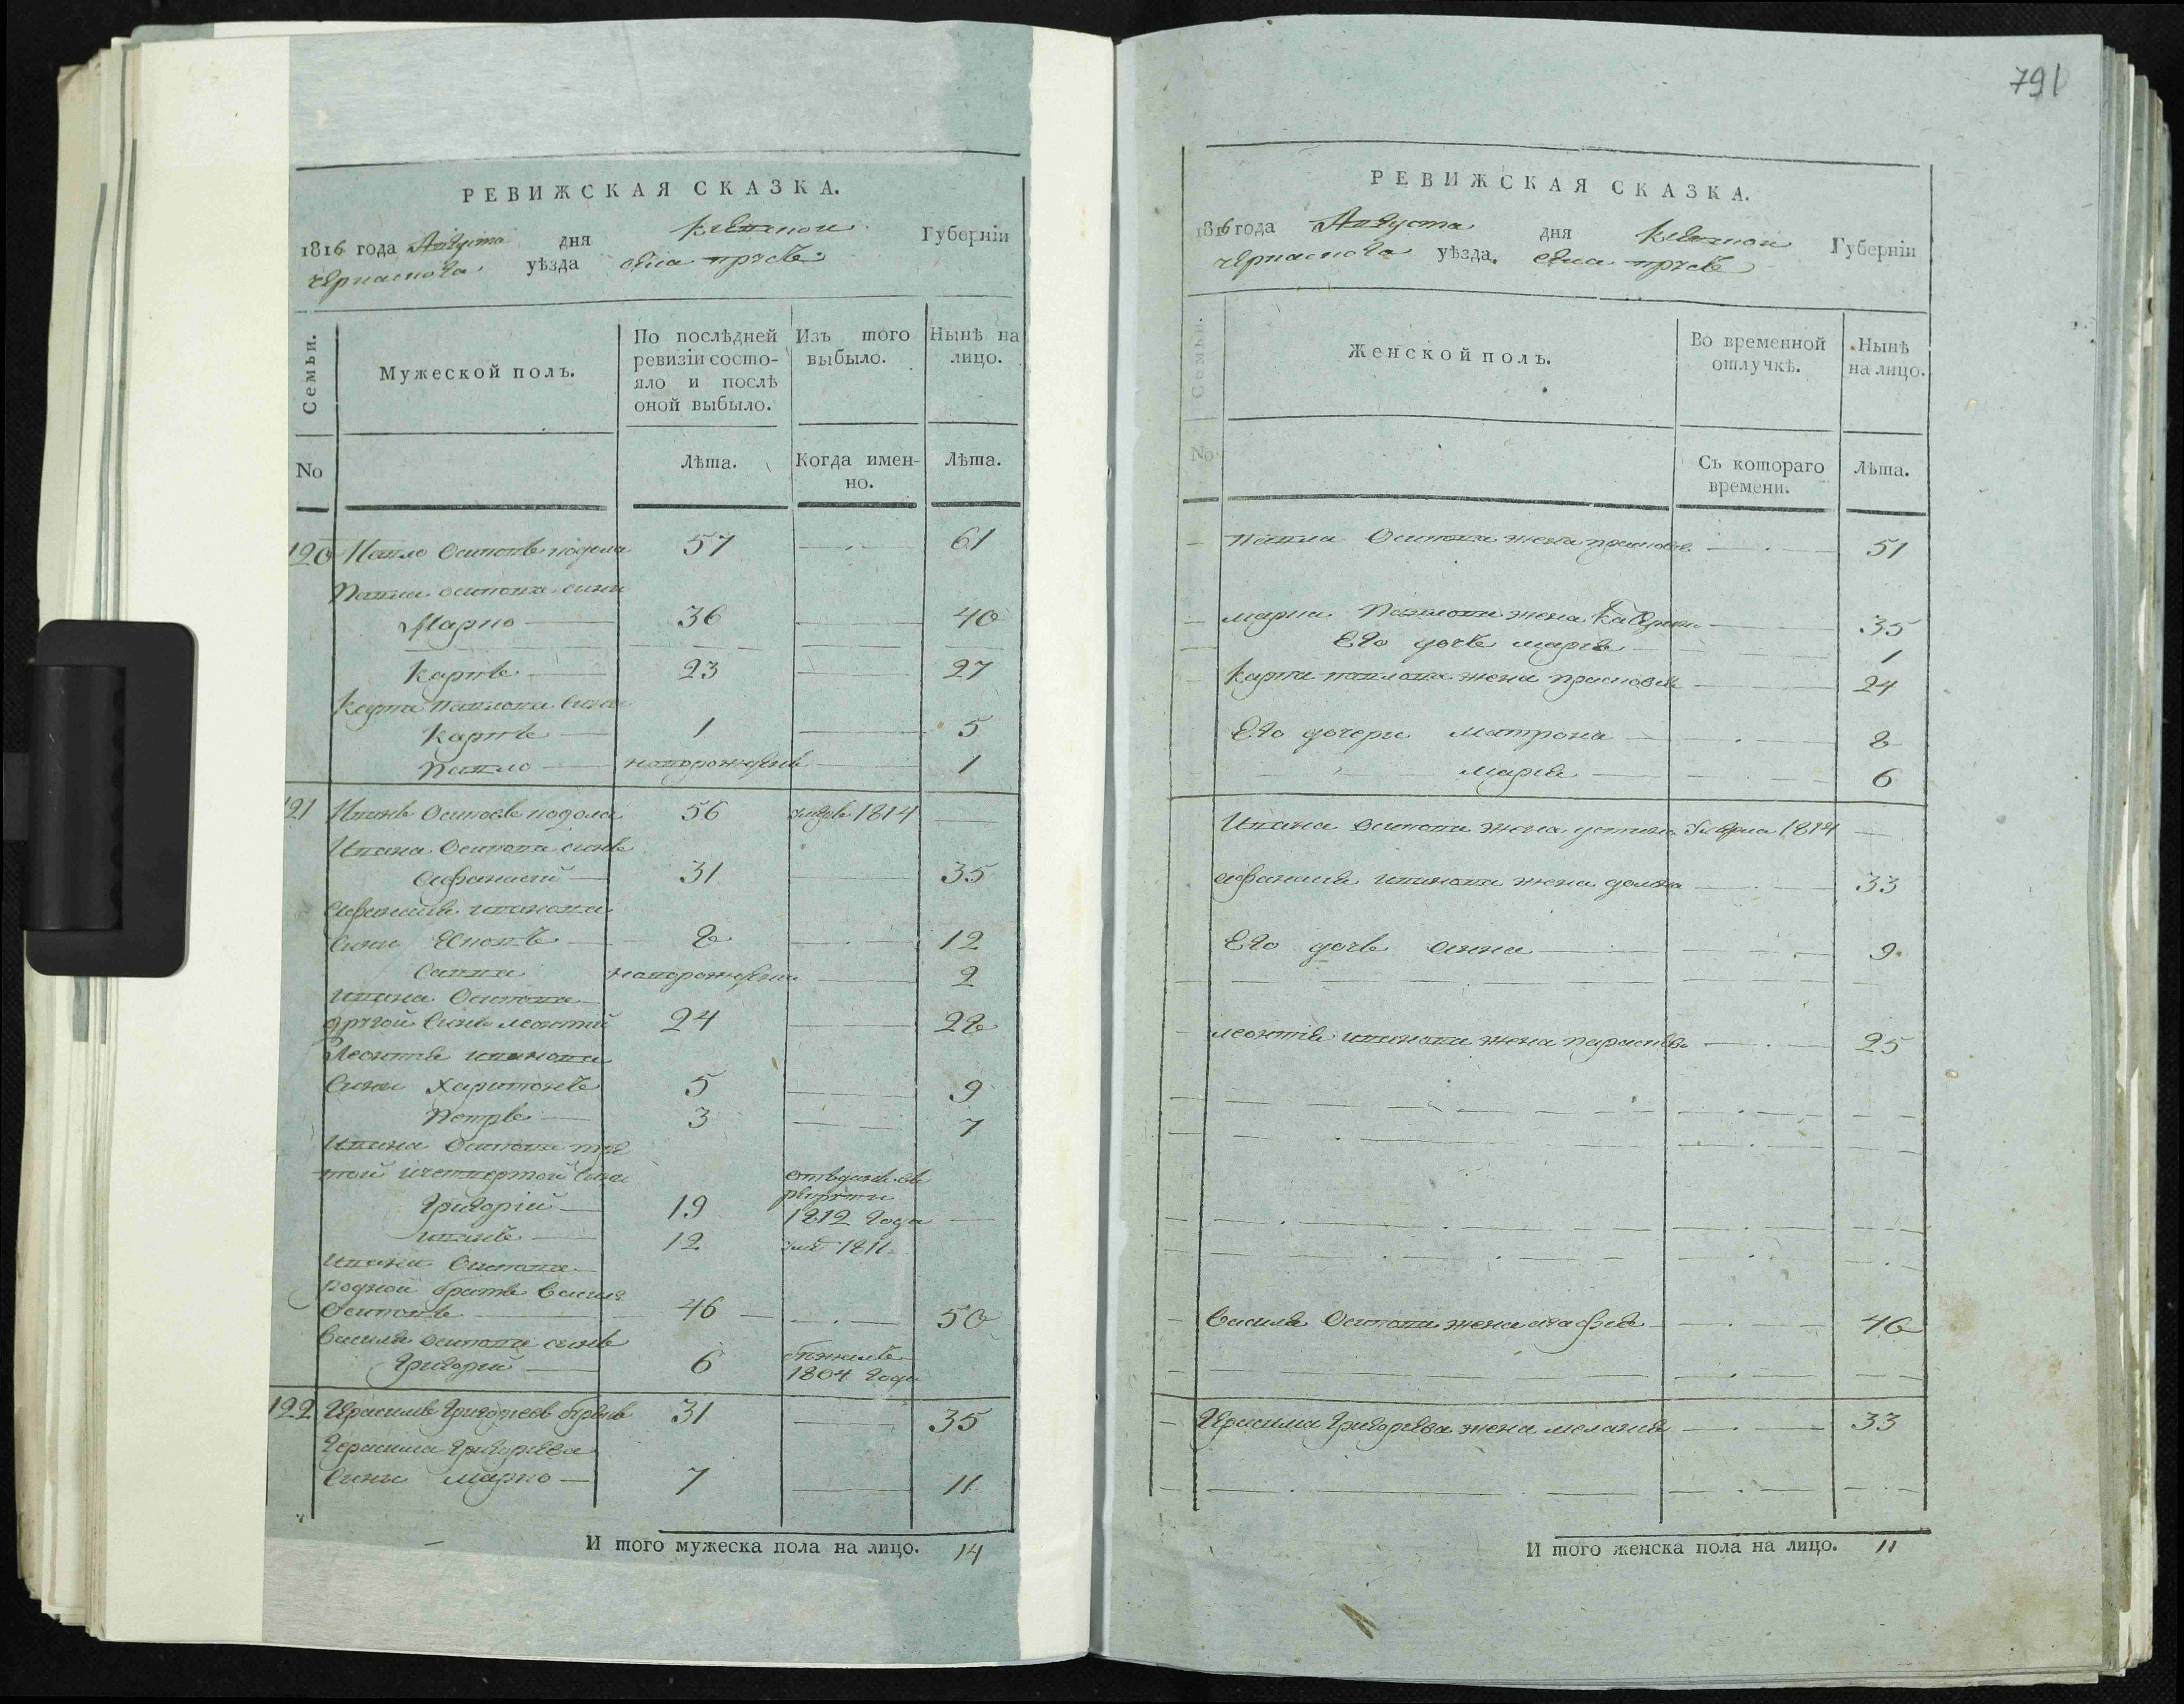 РЕВИЖСКАЯ СКАЗКА.
1816 года Августа дня Киевской Губерніи
Черкаского уѣзда села
Семьи.
Мужеской полъ.
По послѣдней ревизіи состо-
яло и послѣ
оной выбыло.
Изъ того
выбыло.
Нынѣ на
лицо.
No
Лѣта.
Когда имен-
но.
Лѣта.
120 Павло Осиповъ 57 61
Павла Осипова сини
Марко 36 40
Карпъ 23 27
Карпа Павлова сини
Карпъ 1 5
Павло новорожденъ 1
121 Иванъ Осиповъ 56 умеръ 1814
Ивана Осипова синъ
Афанасий 31 35
Афанасія Иванова
сини 8 12
Савва новорожденъ 2
Ивана Осипова
другой синъ Леонтий 24 28
Леонтія Иванова
сини Харитонъ 5 9
Петръ 3 7
Ивана Осипова тре
той и четвертой сини
Григорій 19 отданъ въ
рекруты
1812 года
Иванъ 12 1811
Ивана Осипова
родной братъ Василь
Осиповъ 46 50
Василя Осипова синъ
Григорий 6
1804 года
122 Герасимъ Григорьевъ 31 35
Герасима Григорьева
сини Марко 7 11
И того мужеска пола на лицо. 14
791
РЕВИЖСКАЯ СКАЗКА.
1816 года Августа дня Киевской Губерніи
Черкаского уѣзда. села
Семьи.
Женской полъ.
Во временной
отлучкѣ.
Нынѣ
на лицо.
No
Съ котораго
времени.
Лѣта.
Павла Осипова жена 51
Марка Павлова жена 35
Его дочь Марія 1
Карпа Павлова жена Прасковія 24
Его дочери Матрона 8
Марія 6
Ивана Осипова жена Устина умерла 1814
Афанасія Иванова жена 33
Его дочь Анна 9
Леонтія Иванова жена 25
Василя Осипова жена Агафія 46
Герасима Григорьева жена Меланія 33
И того женска пола на лицо. 11